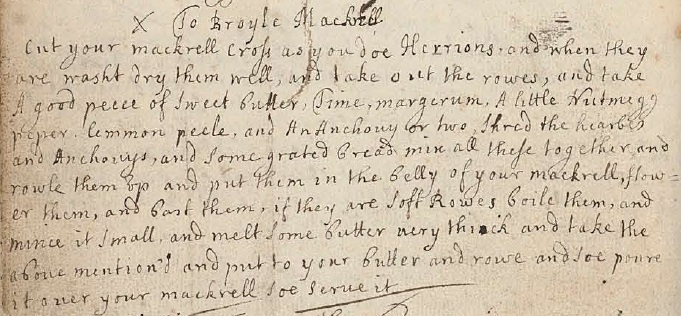 X To Broyle Mackrell
Cut your mackrell Cross as you doe Herrions, and when they
are washt dry them well, and take out the rowes, and take
A good peece of sweet butter, Time, margerum, A little Nutmegg
peper, Lemmon peele, and An Anchovy or two, shred the hearbs
and Anchovys, and some grated bread mix all these together, and
rowle them vp and put them in the belly of your mackrell, flow=
er them, and bast them, if they are soft Rowes boile them, and
mince it small, and melt some butter very thick and take the
above mention'd and put to your butter and rowe and soe poure
it over your mackrell soe serve it